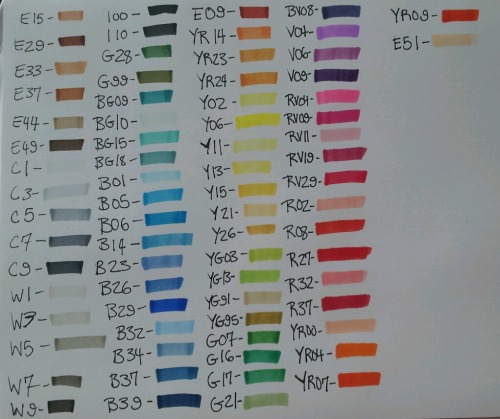 E15-
E29-
E33-
E37-
E44-
E49-
C1-
C3-
C5-
C7-
C9-
W1-
W3-
W5-
W7-
W9-
100-
110-
G28-
G99-
BG09-
BG10-
BG15-
BG18-
B01-
B05-
B06-
B14-
B23-
B26-
B29-
B32-
B34-
B37-
B39-
E09-
YR14-
YR23-
YR24-
Y02-
Y06-
Y11-
Y13-
Y15-
Y21-
Y26-
YG03-
YG13-
YG91-
YG95-
G07-
G16-
G17-
G21-
BV08-
V04-
V06-
V09-
RV04-
RV09-
RV11-
RV19-
RV29-
R02-
R08-
R27-
R32-
R37-
YR00-
YR04-
YR07-
YR09-
E51-